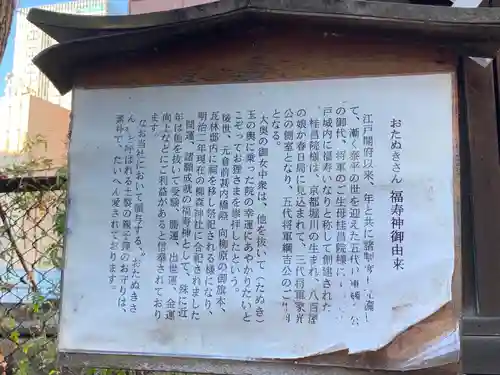 おたぬきさん 福寿神御由来
江戸開府以来、年と共に諸制度も完備し
て、漸く泰平の世を迎えた五代将軍綱吉公
の御代、将軍のご生母桂昌院様に
戸城内に福寿いなりと称して創建された
桂昌院様は、京都堀川の生まれ、八百屋
の娘が春日局に見込まれて、三代将軍家光
公の側室となり、五代将軍綱吉公のご生母
となる。
大奥の御女中衆は、他を抜いて(たぬき)
玉の輿に乗った院の幸運にあやかりたいと
こぞってお狸さまを崇拝したという。
後世、元倉前甚内橋際 向柳原の御旗本、
瓦林邸内に祠を移し祭祀される様になり、
明治二年現在の柳森神社に合祀されました。
開運、諸願成就の福寿神として、殊に近
年は他を抜いて受験、勝運、出世運、金運
向上などにご利益があると信奉されており
ます。
なお当社において頒与する〝おたぬきさ
ん〟と呼ばれる土製の親子狸のお守りは、
素朴で、たいへん愛されております